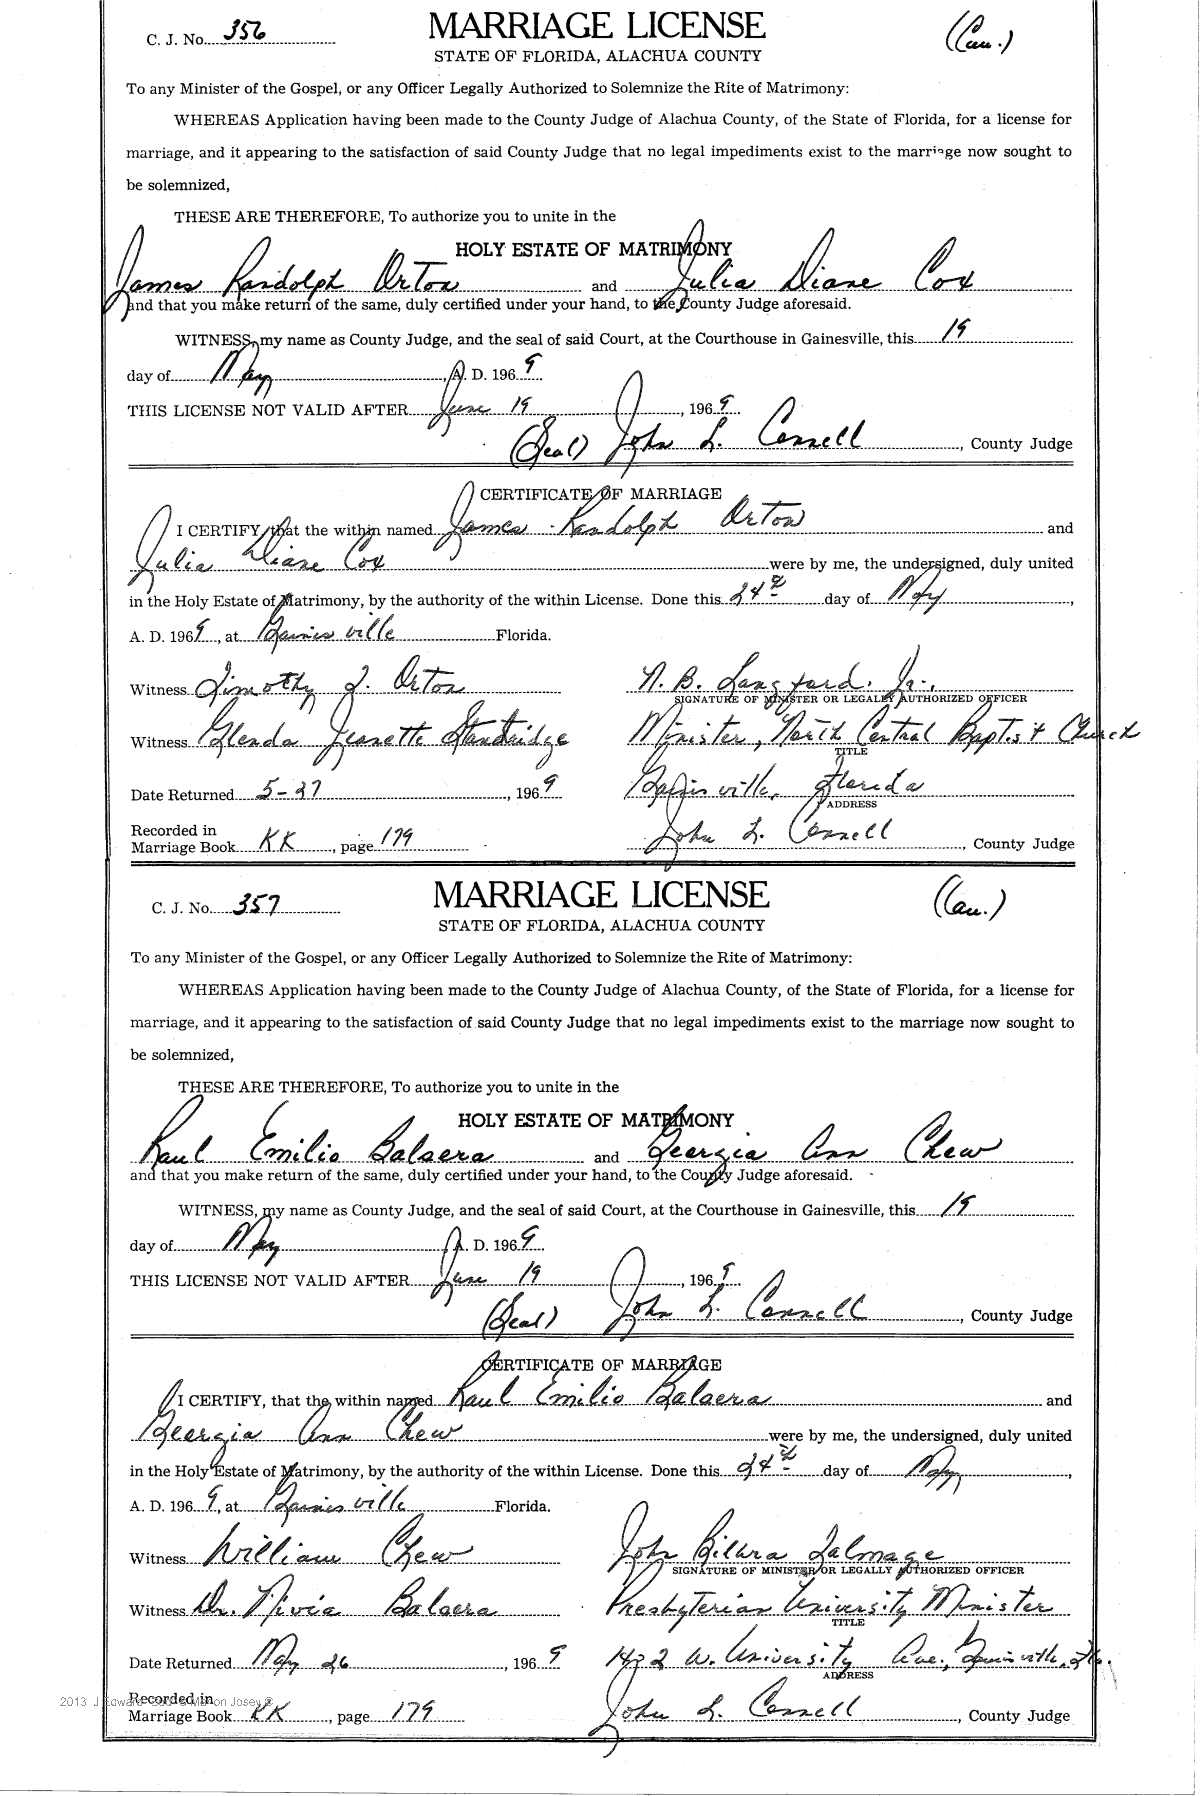 C. J. No. 356
MARRIAGE LICENSE
(Cau.)
STATE OF FLORIDA, ALACHUA COUNTY
To any Minister of the Gospel, or any Officer Legally Authorized to Solemnize the Rite of Matrimony:
WHEREAS Application having been made to the County Judge of Alachua County, of the State of Florida, for a license for
marriage, and it appearing to the satisfaction of said County Judge that no legal impediments exist to the marriage now sought to
be solemnized,
THESE ARE THEREFORE, To authorize you to unite in the
HOLY ESTATE OF MATRIMONY
James Randolph Orton and Julia Diane Cox
and that you make return of the same, duly certified under your hand, to the County Judge aforesaid.
WITNESS, my name as County Judge, and the seal of said Court, at the Courthouse in Gainesville, this 19
day of May, A. D. 1969
THIS LICENSE NOT VALID AFTER June 19, 1969
(Seal) John L. Connell, County Judge
CERTIFICATE OF MARRIAGE
I CERTIFY, that the within named James Randolph Orton and
Julia Diane Cox were by me, the undersigned, duly united
in the Holy Estate of Matrimony, by the authority of the within License. Done this 24th day of May,
A. D. 1969, at Gainesville Florida.
Witness Timothy J. Orton N. B. Langford, Jr.,
SIGNATURE OF MINISTER OR LEGALLY AUTHORIZED OFFICER
Witness Glenda Jeanette Standridge Minister, North Central Baptist Church
TITLE
Date Returned 5-27, 1969 Gainesville, Florida
ADDRESS
Recorded in
Marriage Book KK, page 179 John L. Connell, County Judge
C. J. No. 357
MARRIAGE LICENSE
(Cau.)
STATE OF FLORIDA, ALACHUA COUNTY
To any Minister of the Gospel, or any Officer Legally Authorized to Solemnize the Rite of Matrimony:
WHEREAS Application having been made to the County Judge of Alachua County, of the State of Florida, for a license for
marriage, and it appearing to the satisfaction of said County Judge that no legal impediments exist to the marriage now sought to
be solemnized,
THESE ARE THEREFORE, To authorize you to unite in the
HOLY ESTATE OF MATRIMONY
Raul Emilio Balaera and Georgia Ann Chew
and that you make return of the same, duly certified under your hand, to the County Judge aforesaid.
WITNESS, my name as County Judge, and the seal of said Court, at the Courthouse in Gainesville, this 19
day of May A. D. 1969
THIS LICENSE NOT VALID AFTER June 19, 1969
(Seal) John L. Connell, County Judge
CERTIFICATE OF MARRIAGE
I CERTIFY, that the within named Raul Emilio Balaera and
Georgia Ann Chew were by me, the undersigned, duly united
in the Holy Estate of Matrimony, by the authority of the within License. Done this 24th day of May,
A. D. 1969, at Gainesville Florida.
Witness William Chew John Talmage
SIGNATURE OF MINISTER OR LEGALLY AUTHORIZED OFFICER
Witness Dr. Nivia Balaera Presbyterian University Minister
TITLE
Date Returned May 26, 1969 1422 W. University Ave., Gainesville, Fla.
ADDRESS
Recorded in
Marriage Book KK, page 179 John L. Connell, County Judge
2013 J Edward Marion Josey ©